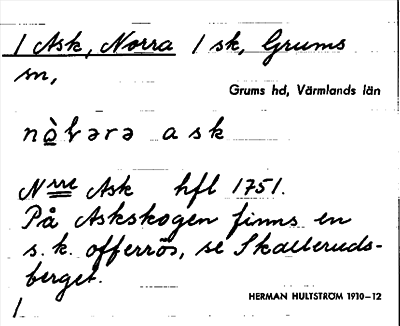 / Ask, Norra / sk, Grums
sn,
Grums hd, Värmlands län
nò̲rərə ask
Nrre Ask hfl 1751.
På Askskogen finns en
s.k. offerrös, se Skalleruds-
berget.
HERMAN HULTSTRÖM 1910–12
/